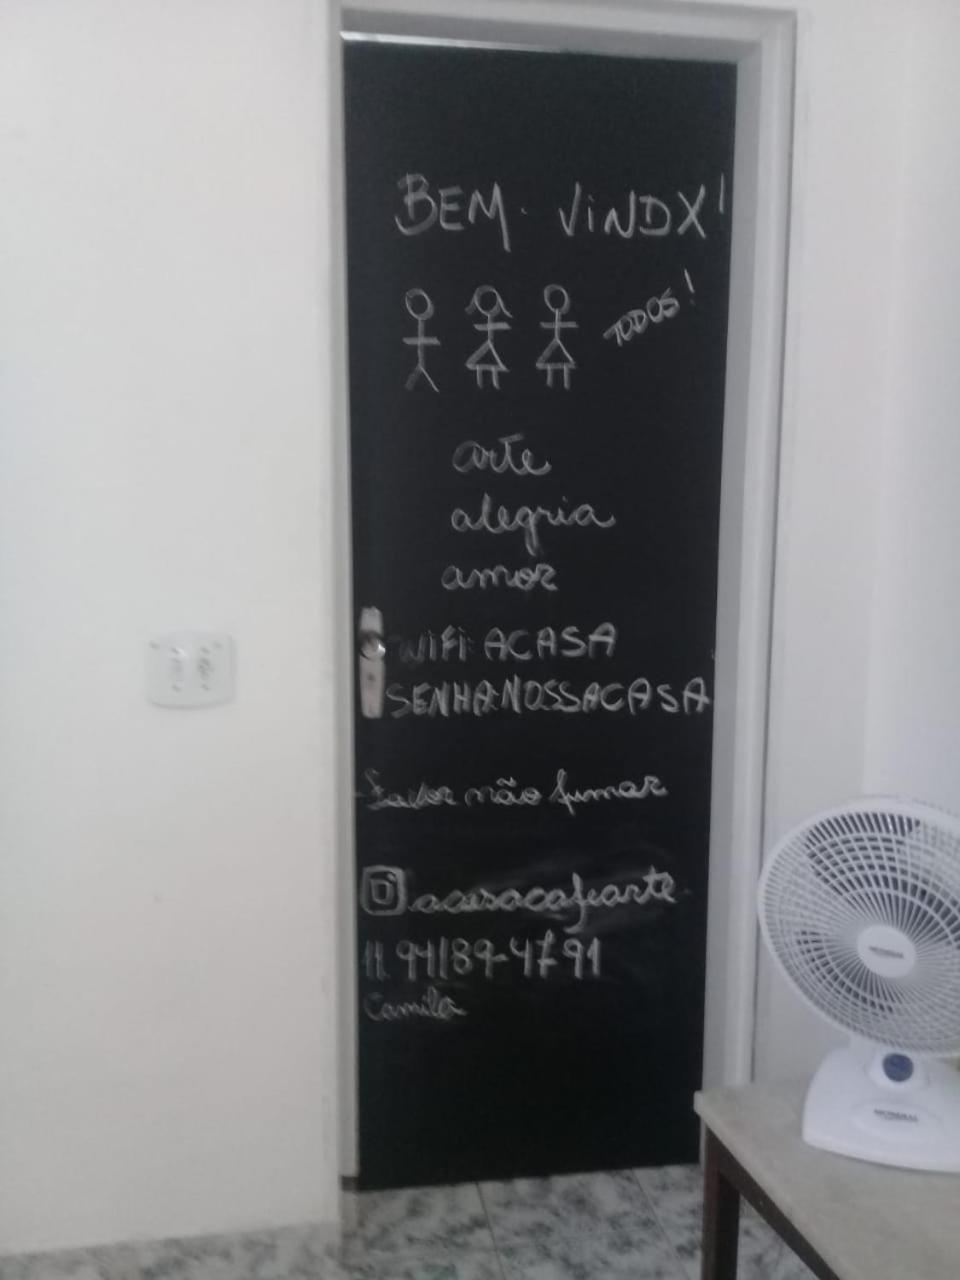 BEM-VINDX!
TODOS!
arte
alegria
amor
WIFI ACASA
SENHA:NOSSACASA
Favor não fumar
acasacafearte
11.94189-4791
Camila
MONDIAL
MONDIAL